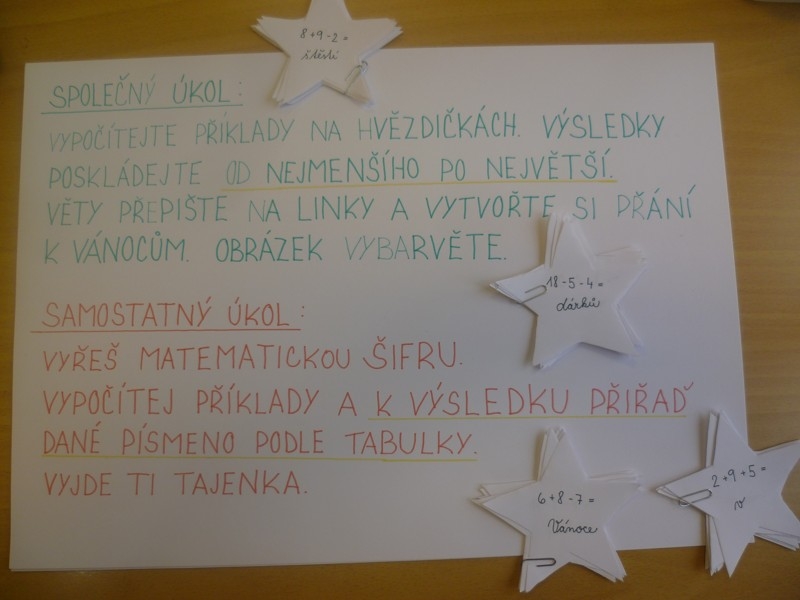 8+9-2=
štěstí
SPOLEČNÝ ÚKOL:
VYPOČÍTEJTE PŘÍKLADY NA HVĚZDIČKÁCH. VÝSLEDKY
POSKLÁDEJTE OD NEJMENŠÍHO PO NEJVĚTŠÍ.
VĚTY PŘEPIŠTE NA LINKY A VYTVOŘTE SI PŘÁNÍ
K VÁNOCŮM. OBRÁZEK VYBARVĚTE.
18-5-4=
dárků
SAMOSTATNÝ ÚKOL:
VYŘEŠ MATEMATICKOU ŠIFRU.
VYPOČÍTEJ PŘÍKLADY A K VÝSLEDKU PŘIŘAĎ
DANÉ PÍSMENO PODLE TABULKY.
VYJDE TI TAJENKA.
6+8-7=
Vánoce
2+9+5=
v